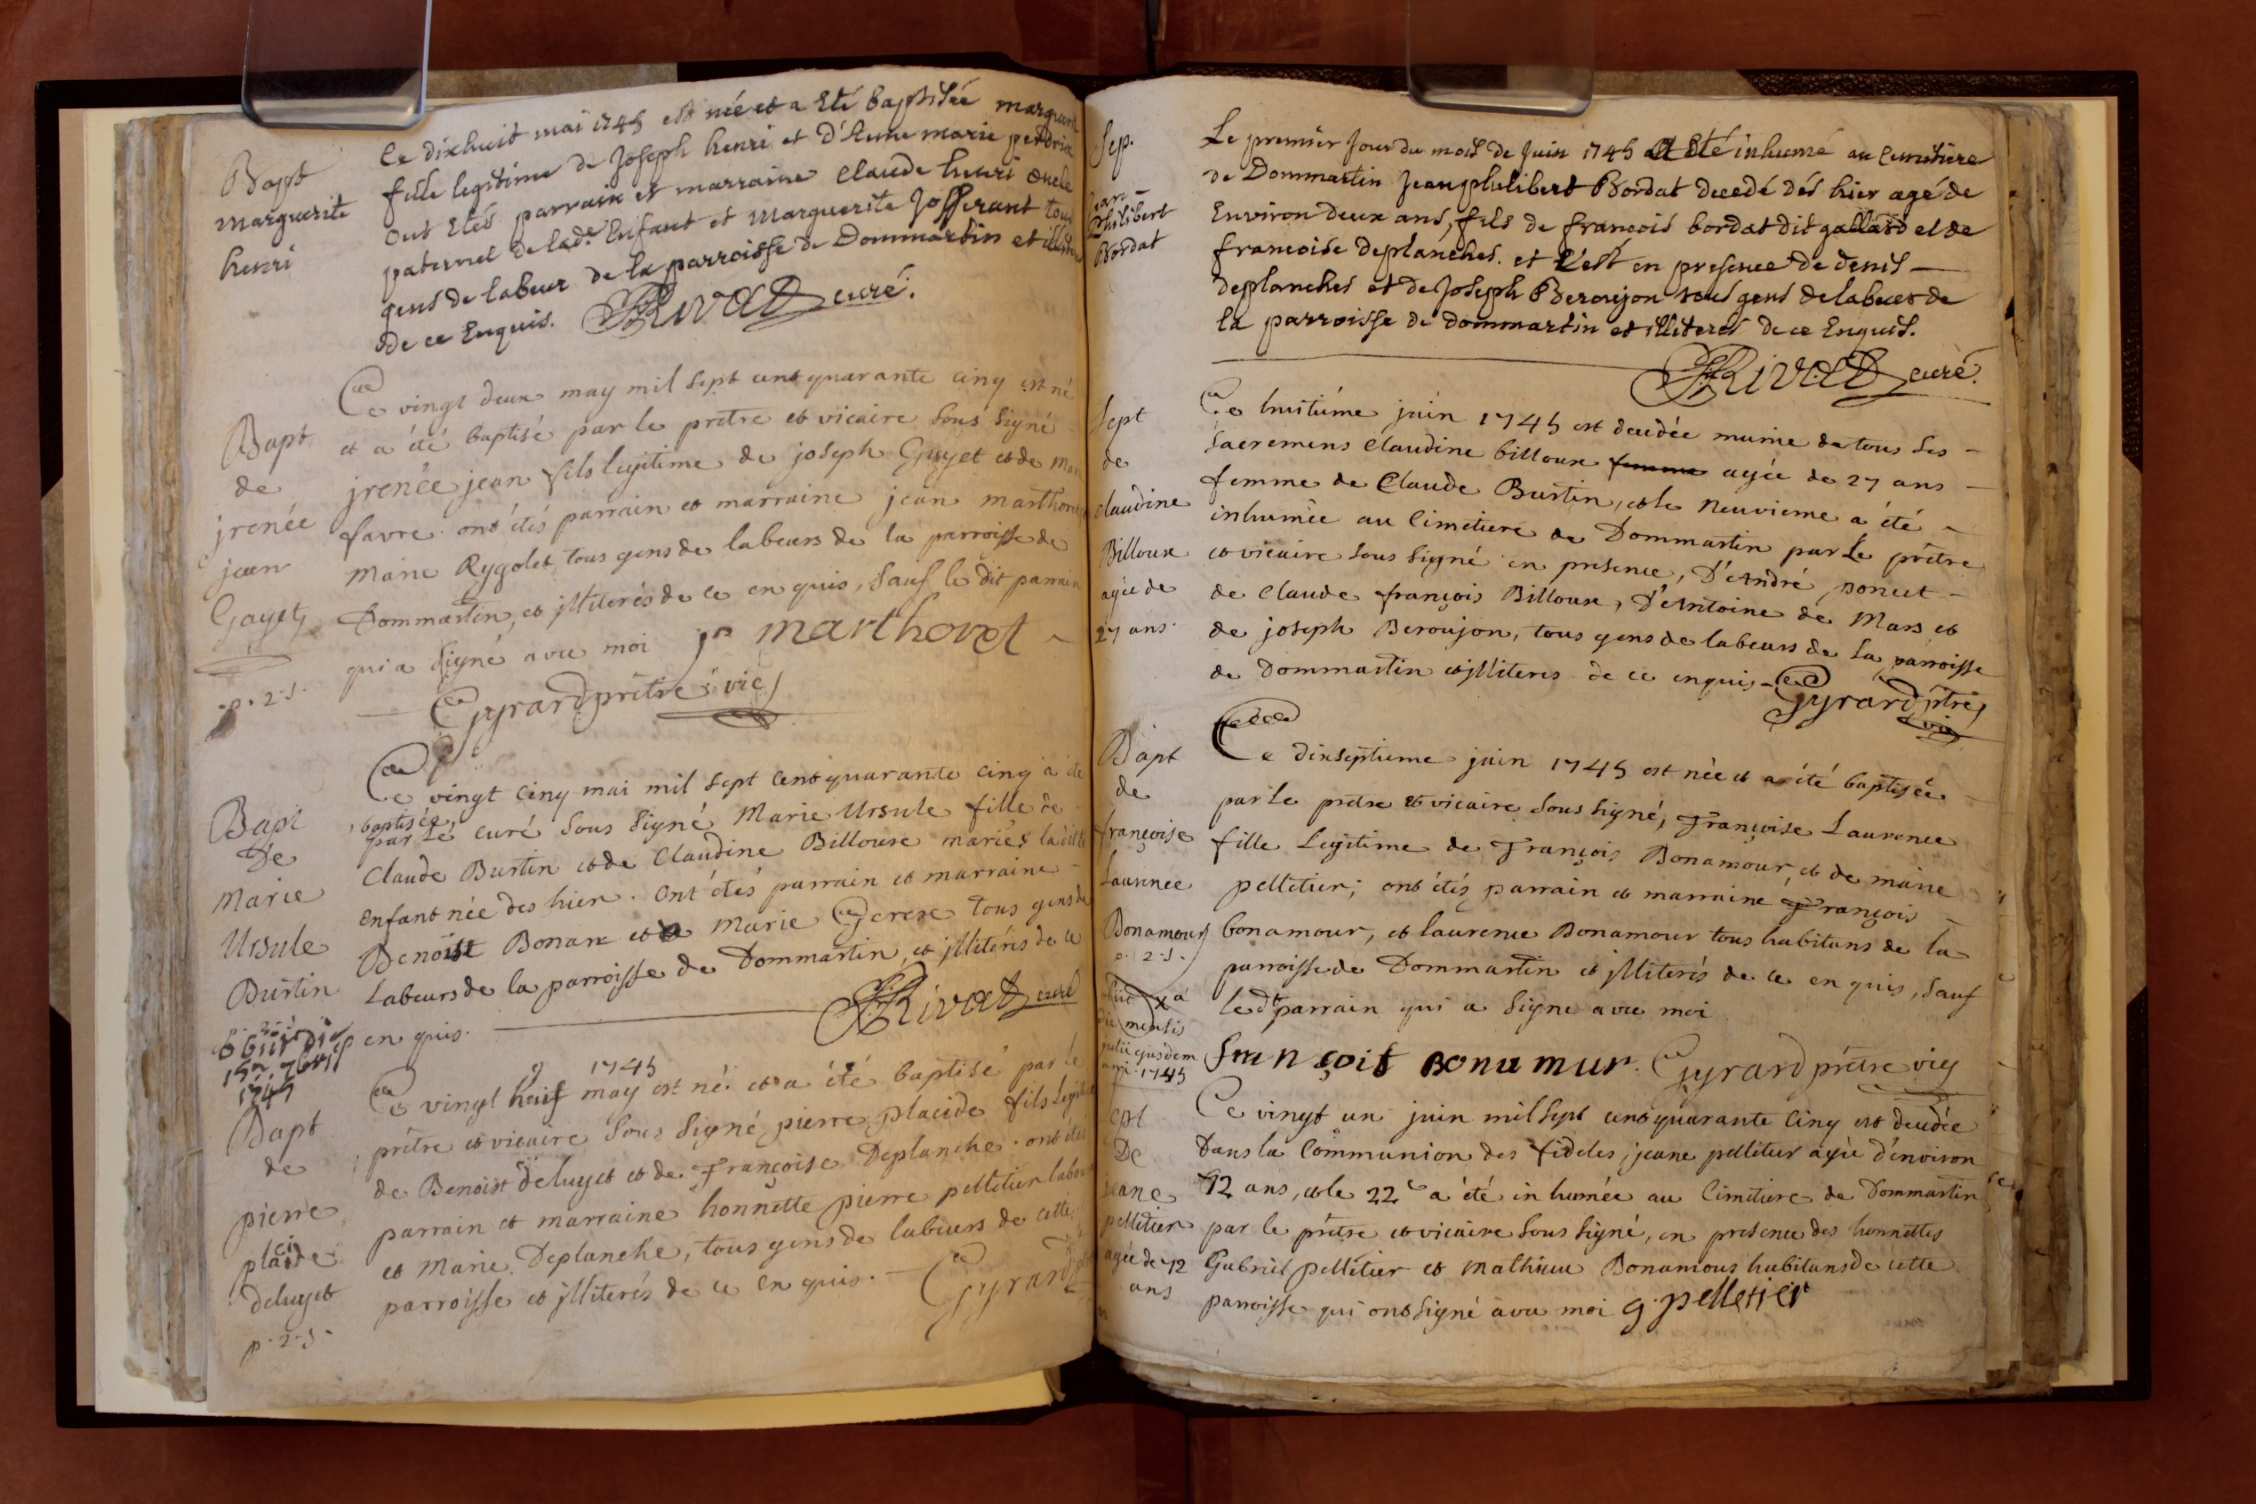 Bapt
marguerite
henri
Ce dixhuit mai 1745 est née et a Eté baptisée marguerite
fille legitime de Joseph henri et D'Anne marie perdrix
ont Etés parrain et marraine Claude henri oncle
paternel de lade. Enfant et Marguerite Jofferant tous
gens de labeur de la parroisse de Dommartin et illiteres
de ce Enquis. Rivat curé.
Bapt
de
jrenée
jean
Gayet
p. 2. s.
Ce vingt deux may mil sept cent quarante cinq est né
et a été baptisé par le prêtre et vicaire sous signé
jrenée jean fils legitime de joseph Gayet et de Marie
favre. ont étés parrain et marraine jean marthoret
Marie Rygolet tous gens de labeurs de la parroisse de
Dommartin, et jlliterés de ce en quis, sauf le dit parrain
qui a signé avec moi jn marthoret
Gyrard prêtre vic
Bapt
De
Marie
Ursule
Burtin
obiit die
15a 7bris
1745
Ce vingt cinq mai mil sept cent quarante cinq a été
baptisée
par le curé sous signé Marie Ursule fille de
Claude Burtin et de Claudine Billoux mariés ladite
enfant née des hier. ont étés parrain et marraine
Benoist Bonan et Marie Gerese tous gens de
Labeurs de la parroisse de Dommartin, et jlliterés de ce
en quis. Rivat curé
Bapt
de
pierre
placide
deluyet
p. 2. s.
1745
Ce vingt huit may est né et a été baptisé par le
prêtre et vicaire sous signé pierre placide fils legitime
de Benoist deluyet et de Françoise Deplanche. ont étés
parrain et marraine honnette pierre pelletier labour
et Marie Deplanche, tous gens de labeurs de cette
parroisse et jlliterés de ce en quis. Gyrard
Sep.
jean
Philibert
Bordat
Le premier Jour du mois de Juin 1745 a Eté inhumé au Cimetiere
de Dommartin Jean philibert Bordat decedé dés hier agé de
Environ deux ans, fils de francois bordat dit gallard et de
francoise deplanches. et C'est en presence de denis
deplanches et de Joseph Beroujon tous gens de labeur de
la parroisse de dommartin et illiterés de ce Enquis.
Rivat curé.
Sept
de
Claudine
Billoux
agée de
27 ans.
Ce huitiéme juin 1745 est decedée munie de tous ses
sacremens Claudine billoux femme agée de 27 ans
femme de Claude Burtin, et le neuvieme a été
inhumée au Cimetiere de Dommartin par le prêtre
et vicaire sous signé en presence, D'André Bonnet
de Claude françois Billoux, D'Antoine de Mars et
de joseph Beroujon, tous gens de labeurs de la parroisse
de Dommartin et jlliteres de ce enquis. Gyrard ptre
vic
Bapt
de
françoise
Laurence
Bonamour
p. 2. s.
obiit xa
die mensis
julii ejusdem
anni 1745
Ce dixseptieme juin 1745 est née et a été baptisée
par le prêtre et vicaire sous signé, Françoise Laurence
fille Legitime de François Bonamour, et de marie
pelletier; ont étés parrain et marraine François
bonamour, et laurence Bonamour tous habitans de la
parroisse de Dommartin et jlliterés de ce en quis, sauf
le dt parrain qui a signe avec moi
franςois bonamur. Gyrard prêtre vic
Sept
De
jeane
pelletier
agée de 12
ans
Ce vingt un juin mil sept cent quarante cinq est decedée
Dans la Communion des fideles, jeane pelletier agée d'environ
12 ans, et le 22e a été inhumée au Cimetiere de Dommartin
par le prêtre et vicaire sous signé, en presence des honnettes
Gabriel pelletier et Mathieu Bonamour habitans de cette
parroisse qui ont signé avec moi g. pelletier